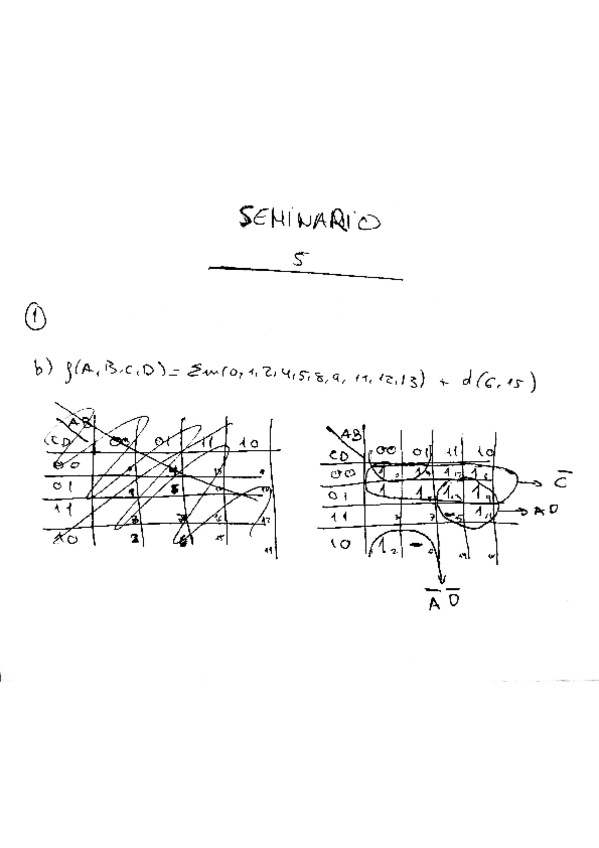 SEMINARIO
5
1
b) f(A,B,C,D) = Σm(0,1,2,4,5,8,9,11,12,13) + d(6,15)
AB
CD 00 01 11 10
00
01
11
10
AB
CD 00 01 11 10
00 1 1 1 1
01 1 1 1 1
11 - 1
10 1 -
C̅
AD
A̅ D̅